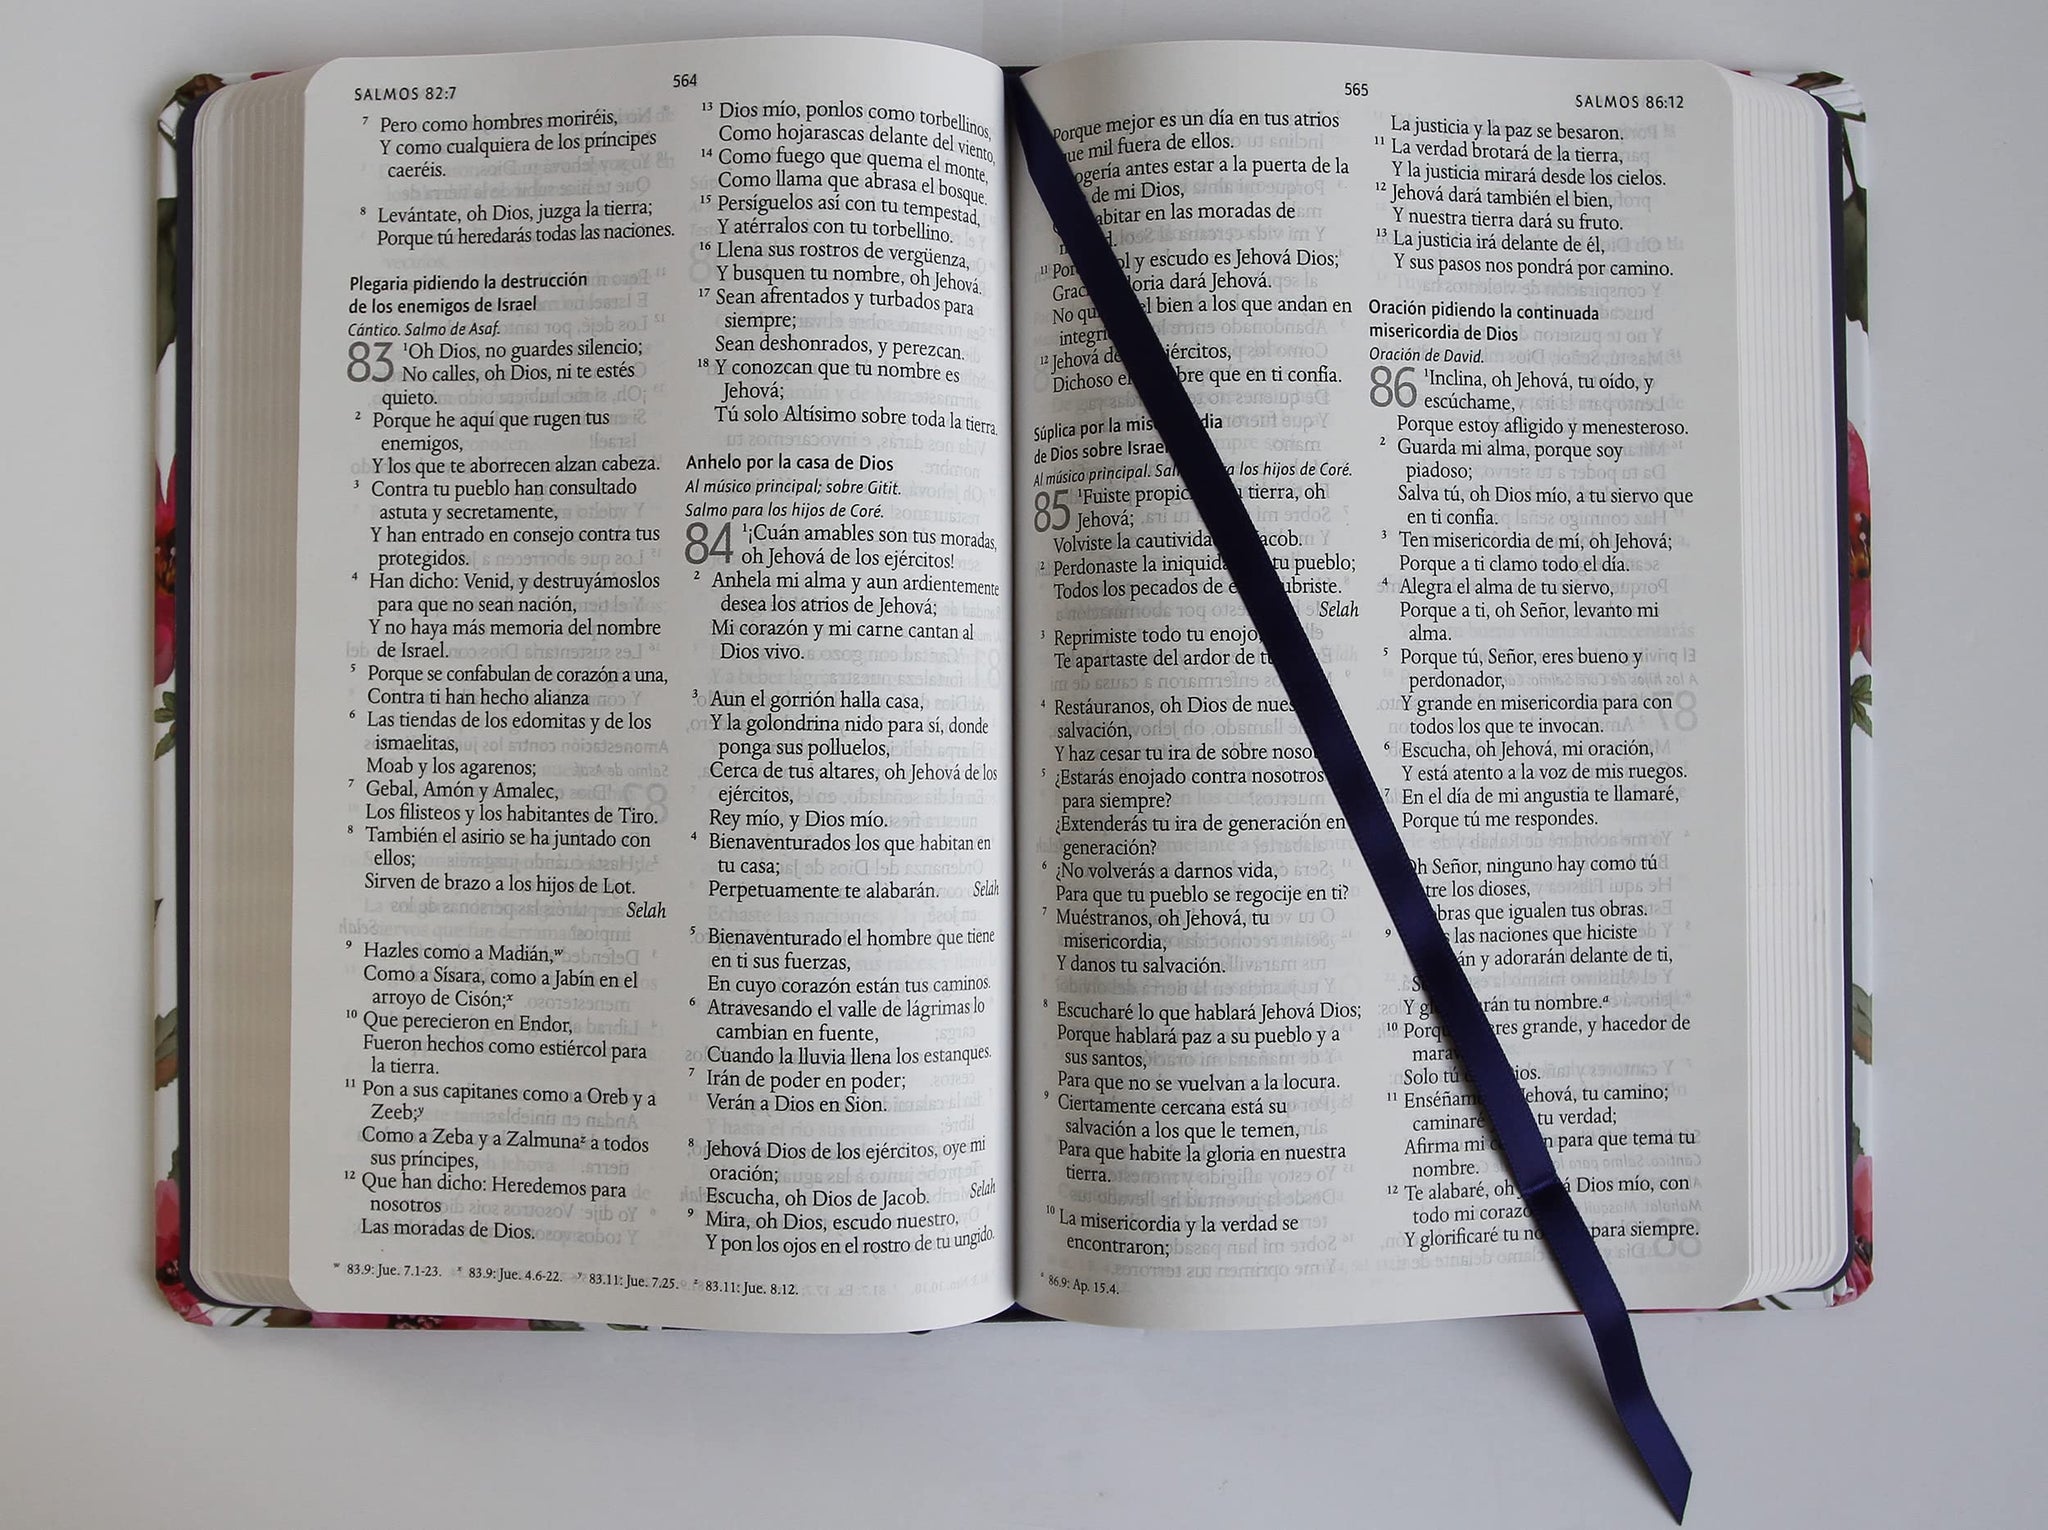 SALMOS 82:7
564
7 Pero como hombres moriréis,
Y como cualquiera de los príncipes
caeréis.
8 Levántate, oh Dios, juzga la tierra;
Porque tú heredarás todas las naciones.
Plegaria pidiendo la destrucción
de los enemigos de Israel
Cántico. Salmo de Asaf.
83 1Oh Dios, no guardes silencio;
No calles, oh Dios, ni te estés
quieto.
2 Porque he aquí que rugen tus
enemigos,
Y los que te aborrecen alzan cabeza.
3 Contra tu pueblo han consultado
astuta y secretamente,
Y han entrado en consejo contra tus
protegidos.
4 Han dicho: Venid, y destruyámoslos
para que no sean nación,
Y no haya más memoria del nombre
de Israel.
5 Porque se confabulan de corazón a una,
Contra ti han hecho alianza
6 Las tiendas de los edomitas y de los
ismaelitas,
Moab y los agarenos;
7 Gebal, Amón y Amalec,
Los filisteos y los habitantes de Tiro.
8 También el asirio se ha juntado con
ellos;
Sirven de brazo a los hijos de Lot.
Selah
9 Hazles como a Madián,w
Como a Sísara, como a Jabín en el
arroyo de Cisón;x
10 Que perecieron en Endor,
Fueron hechos como estiércol para
la tierra.
11 Pon a sus capitanes como a Oreb y a
Zeeb;y
Como a Zeba y a Zalmunaz a todos
sus príncipes,
12 Que han dicho: Heredemos para
nosotros
Las moradas de Dios.
13 Dios mío, ponlos como torbellinos,
Como hojarascas delante del viento,
14 Como fuego que quema el monte,
Como llama que abrasa el bosque.
15 Persíguelos así con tu tempestad,
Y atérralos con tu torbellino.
16 Llena sus rostros de vergüenza,
Y busquen tu nombre, oh Jehová.
17 Sean afrentados y turbados para
siempre;
Sean deshonrados, y perezcan.
18 Y conozcan que tu nombre es
Jehová;
Tú solo Altísimo sobre toda la tierra.
Anhelo por la casa de Dios
Al músico principal; sobre Gitit.
Salmo para los hijos de Coré.
84 1¡Cuán amables son tus moradas,
oh Jehová de los ejércitos!
2 Anhela mi alma y aun ardientemente
desea los atrios de Jehová;
Mi corazón y mi carne cantan al
Dios vivo.
3 Aun el gorrión halla casa,
Y la golondrina nido para sí, donde
ponga sus polluelos,
Cerca de tus altares, oh Jehová de los
ejércitos,
Rey mío, y Dios mío.
4 Bienaventurados los que habitan en
tu casa;
Perpetuamente te alabarán. Selah
5 Bienaventurado el hombre que tiene
en ti sus fuerzas,
En cuyo corazón están tus caminos.
6 Atravesando el valle de lágrimas lo
cambian en fuente,
Cuando la lluvia llena los estanques.
7 Irán de poder en poder;
Verán a Dios en Sion.
8 Jehová Dios de los ejércitos, oye mi
oración;
Escucha, oh Dios de Jacob. Selah
9 Mira, oh Dios, escudo nuestro,
Y pon los ojos en el rostro de tu ungido.
w 83.9: Jue. 7.1-23. x 83.9: Jue. 4.6-22. y 83.11: Jue. 7.25. z 83.11: Jue. 8.12.
565
SALMOS 86:12
Porque mejor es un día en tus atrios
que mil fuera de ellos.
antes estar a la puerta de la
de mi Dios,
habitar en las moradas de
11 sol y escudo es Jehová Dios;
gloria dará Jehová.
No el bien a los que andan en
12 Jehová de ejércitos,
Dichoso el hombre que en ti confía.
Súplica por la misericordia
de Dios sobre Israel
Al músico principal. Salmo para los hijos de Coré.
85 1Fuiste propicio tu tierra, oh
Jehová;
Volviste la cautividad Jacob.
2 Perdonaste la iniquidad tu pueblo;
Todos los pecados de cubriste.
Selah
3 Reprimiste todo tu enojo,
Te apartaste del ardor de
4 Restáuranos, oh Dios de
salvación,
Y haz cesar tu ira de sobre nosotros
5 ¿Estarás enojado contra nosotros
para siempre?
¿Extenderás tu ira de generación en
generación?
6 ¿No volverás a darnos vida,
Para que tu pueblo se regocije en ti?
7 Muéstranos, oh Jehová, tu
misericordia,
Y danos tu salvación.
8 Escucharé lo que hablará Jehová Dios;
Porque hablará paz a su pueblo y a
sus santos,
Para que no se vuelvan a la locura.
9 Ciertamente cercana está su
salvación a los que le temen,
Para que habite la gloria en nuestra
tierra.
10 La misericordia y la verdad se
encontraron;
La justicia y la paz se besaron.
11 La verdad brotará de la tierra,
Y la justicia mirará desde los cielos.
12 Jehová dará también el bien,
Y nuestra tierra dará su fruto.
13 La justicia irá delante de él,
Y sus pasos nos pondrá por camino.
Oración pidiendo la continuada
misericordia de Dios
Oración de David.
86 1Inclina, oh Jehová, tu oído, y
escúchame,
Porque estoy afligido y menesteroso.
2 Guarda mi alma, porque soy
piadoso;
Salva tú, oh Dios mío, a tu siervo que
en ti confía.
3 Ten misericordia de mí, oh Jehová;
Porque a ti clamo todo el día.
4 Alegra el alma de tu siervo,
Porque a ti, oh Señor, levanto mi
alma.
5 Porque tú, Señor, eres bueno y
perdonador,
Y grande en misericordia para con
todos los que te invocan.
6 Escucha, oh Jehová, mi oración,
Y está atento a la voz de mis ruegos.
7 En el día de mi angustia te llamaré,
Porque tú me respondes.
Oh Señor, ninguno hay como tú
entre los dioses,
obras que igualen tus obras.
9 las naciones que hiciste
y adorarán delante de ti,
Y tu nombre.a
10 Porque eres grande, y hacedor de
Solo tú Dios.
11 Enséñame Jehová, tu camino;
caminaré tu verdad;
Afirma mi para que tema tu
nombre.
12 Te alabaré, oh Jehová Dios mío, con
todo mi corazón
Y glorificaré tu para siempre.
a 86.9: Ap. 15.4.